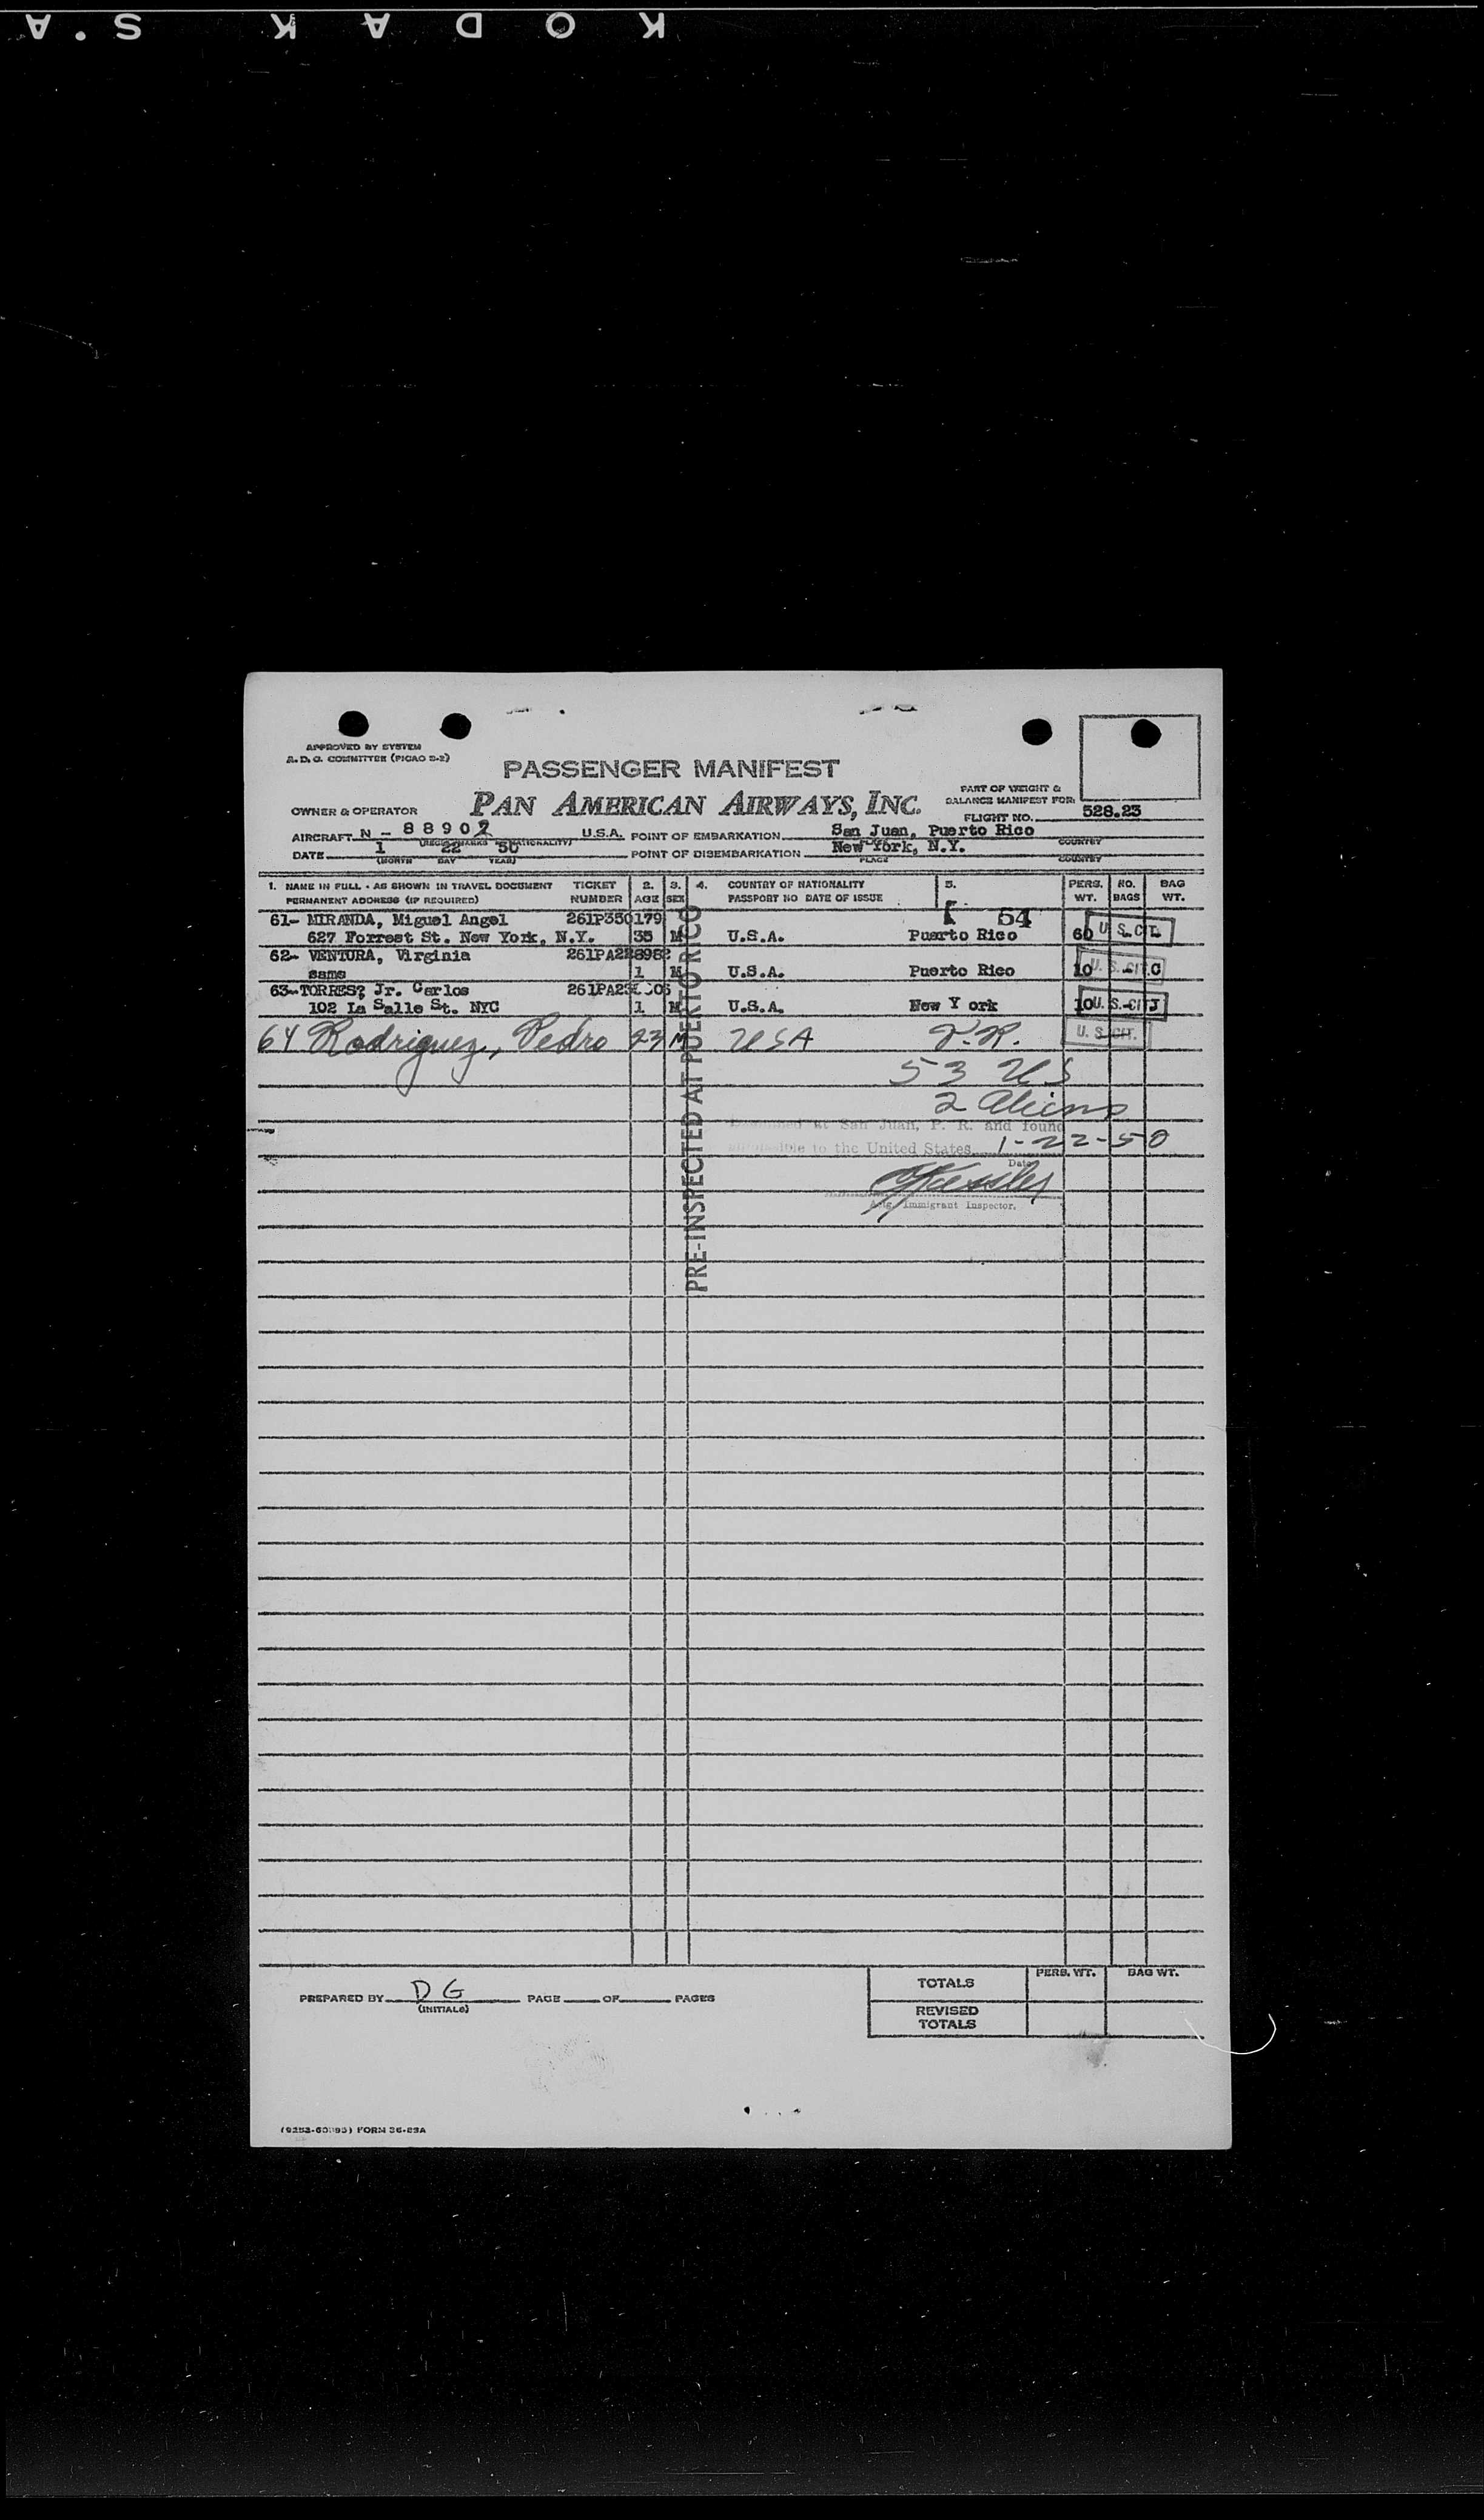 KODAK S.A
APPROVED BY SYSTEM
A. D. C. COMMITTEE (PICAO D-2)
PASSENGER MANIFEST
PART OF WEIGHT &
BALANCE MANIFEST FOR:
OWNER & OPERATOR PAN AMERICAN AIRWAYS, INC. FLIGHT NO. 528.23
AIRCRAFT N - 88902 U.S.A. POINT OF EMBARKATION San Juan, Puerto Rico
(NATIONALITY) COUNTRY
DATE 1 22 50 POINT OF DISEMBARKATION New York, N.Y.
(MONTH DAY YEAR) PLACE COUNTRY
1. NAME IN FULL - AS SHOWN IN TRAVEL DOCUMENT TICKET 2. 3. 4. COUNTRY OF NATIONALITY 5. PERS. NO. BAG
PERMANENT ADDRESS (IF REQUIRED) NUMBER AGE SEX PASSPORT NO DATE OF ISSUE WT. BAGS WT.
61- MIRANDA, Miguel Angel 261P350179 54
627 Forrest St. New York, N.Y. 35 M U.S.A. Puerto Rico 60 U. S. CIT.
62- VENTURA, Virginia 261PA228982
same 1 M U.S.A. Puerto Rico 10 U. S. CIT. C
63- TORRES? Jr. Carlos
102 La Salle St. NYC 1 M U.S.A. New Y ork 10 U. S. CIT. J
64 Rodriguez, Pedro 23 M USA P.R. U. S. CIT.
53 US
2 Aliens
at San Juan, P. R. and found
to the United States 1-22-50
Date
Immigrant Inspector.
PRE-INSPECTED AT PUERTO RICO
PREPARED BY D G PAGE OF PAGES
(INITIALS)
TOTALS PERS. WT. BAG WT.
REVISED
TOTALS
FORM 36-23A